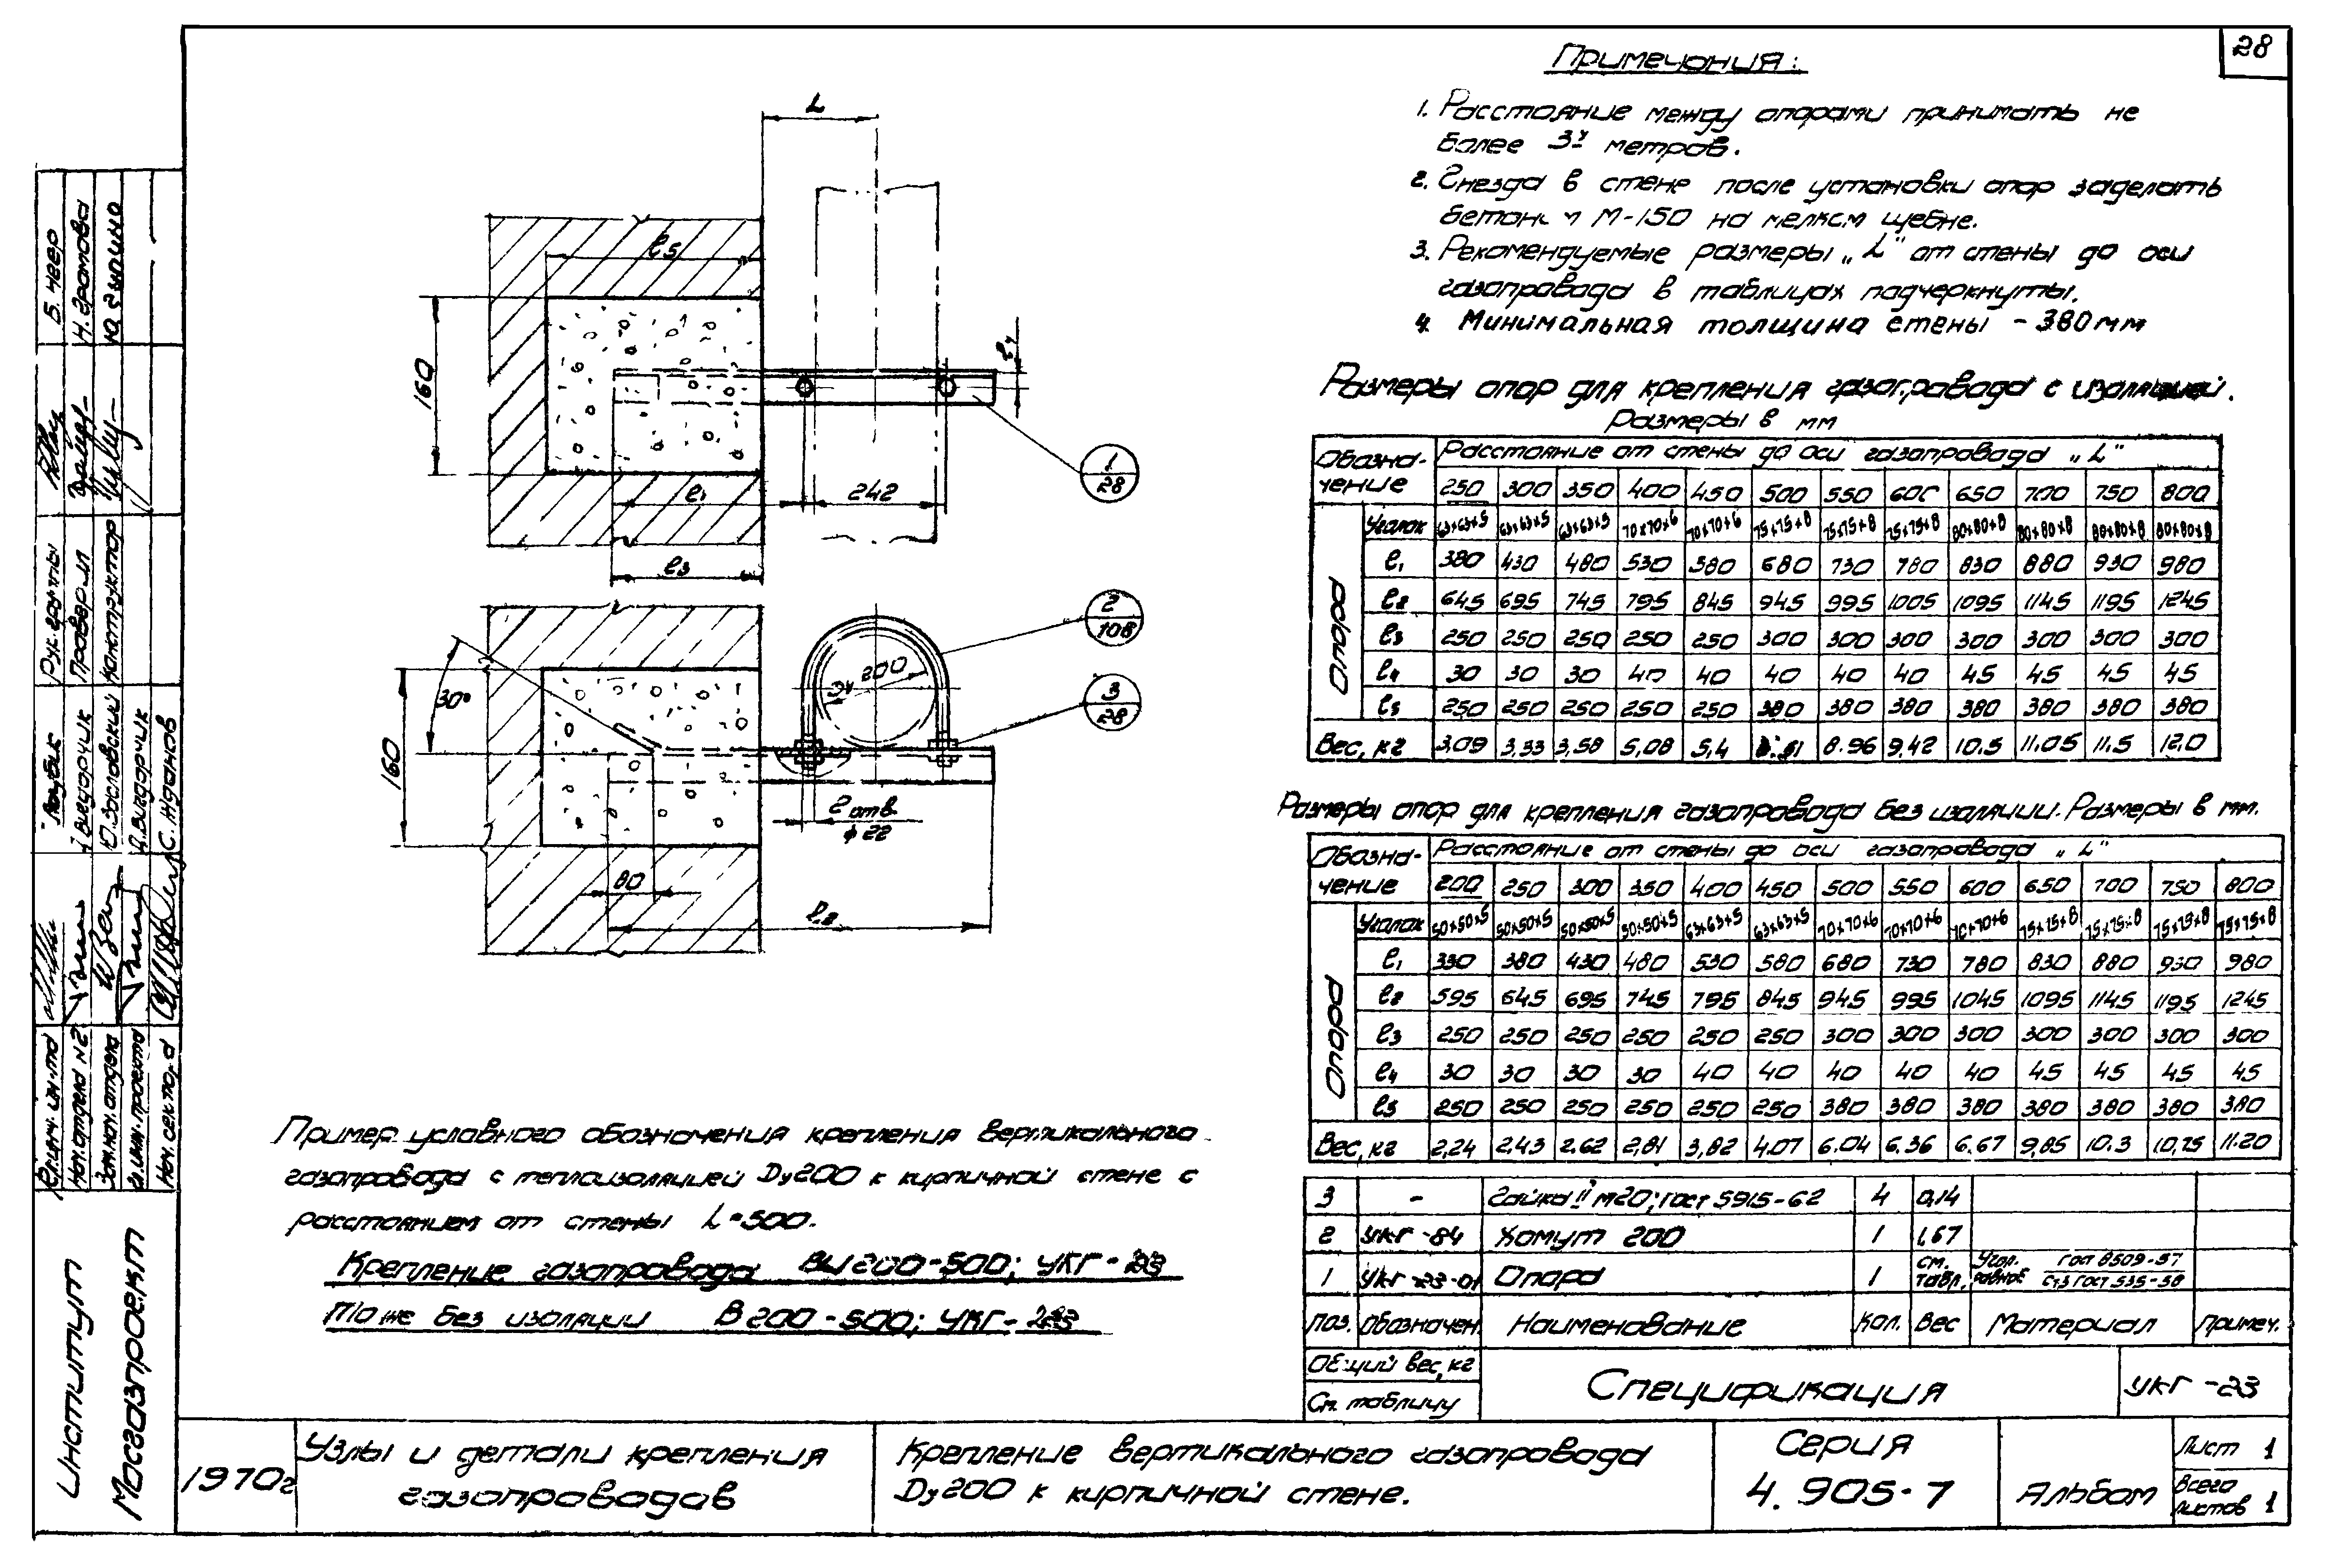 28
Примечания:
1. Расстояние между опорами принимать не
более 3х метров.
2. Гнезда в стене после установки опор заделать
бетоном М-150 на мелком щебне.
3. Рекомендуемые размеры „L" от стены до оси
газопровода в таблицах подчеркнуты.
4. Минимальная толщина стены - 380мм
L
ℓ5
160
ℓ4
ℓ1
242
ℓ3
1
28
2
108
3
28
30°
Ду 200
160
2 отв.
ф22
80
ℓ2
Размеры опор для крепления газопровода с изоляцией.
Размеры в мм
Обозна-чение Расстояние от стены до оси газопровода „L"
250 300 350 400 450 500 550 600 650 700 750 800
Опора
Уголок 63×63×5 63×63×5 63×63×5 70×70×6 70×70×6 75×75×8 75×75×8 75×75×8 80×80×8 80×80×8 80×80×8 80×80×8
ℓ1 380 430 480 530 580 680 730 780 830 880 930 980
ℓ2 645 695 745 795 845 945 995 1005 1095 1145 1195 1245
ℓ3 250 250 250 250 250 300 300 300 300 300 300 300
ℓ4 30 30 30 40 40 40 40 40 45 45 45 45
ℓ5 250 250 250 250 250 380 380 380 380 380 380 380
Вес, кг 3,09 3,33 3,58 5,08 5,4 8.96 9,42 10.5 11.05 11.5 12.0
Размеры опор для крепления газопровода без изоляции. Размеры в мм.
Обозна-чение Расстояние от стены до оси газопровода „L"
200 250 300 350 400 450 500 550 600 650 700 750 800
Опора
Уголок 50×50×5 50×50×5 50×50×5 50×50×5 63×63×5 63×63×5 70×70×6 70×70×6 70×70×6 75×75×8 75×75×8 75×75×8 75×75×8
ℓ1 330 380 430 480 530 580 680 730 780 830 880 930 980
ℓ2 595 645 695 745 795 845 945 995 1045 1095 1145 1195 1245
ℓ3 250 250 250 250 250 250 300 300 300 300 300 300 300
ℓ4 30 30 30 30 40 40 40 40 40 45 45 45 45
ℓ5 250 250 250 250 250 250 380 380 380 380 380 380 380
Вес, кг 2,24 2,43 2.62 2,81 3,82 4.07 6.04 6.36 6.67 9,85 10.3 10,75 11.20
Пример условного обозначения крепления вертикального
газопровода с теплоизоляцией Ду200 к кирпичной стене с
расстоянием от стены L=500.
Крепление газопровода ВИ200-500; УКГ-23
То же без изоляции В200-500; УКГ-23
3 - Гайка II М20; ГОСТ 5915-62 4 0,14
2 УКГ-84 Хомут 200 1 1,67
1 УКГ-23-01 Опора 1 см. табл. Угол. равноб ГОСТ 8509-57 Ст3 ГОСТ 535-58
Поз. Обозначен. Наименование Кол. Вес Материал Примеч.
Общий вес, кг
См. таблицу
Спецификация
УКГ-23
1970г
Узлы и детали крепления
газопроводов
Крепление вертикального газопровода
Ду200 к кирпичной стене.
Серия
4.905-7
Альбом
Лист 1
Всего
листов 1
Институт
Мосгазпроект
Гл. инж. ин-та
Нач. отдела №2
Зам. нач. отдела
Гл. инж. проекта
Нач. сектора
А. Вигдорчик
Ю. Зословский
А. Вигдорчик
С. Жданов
Рук. группы
Проверил
Конструктор
Н. Громова